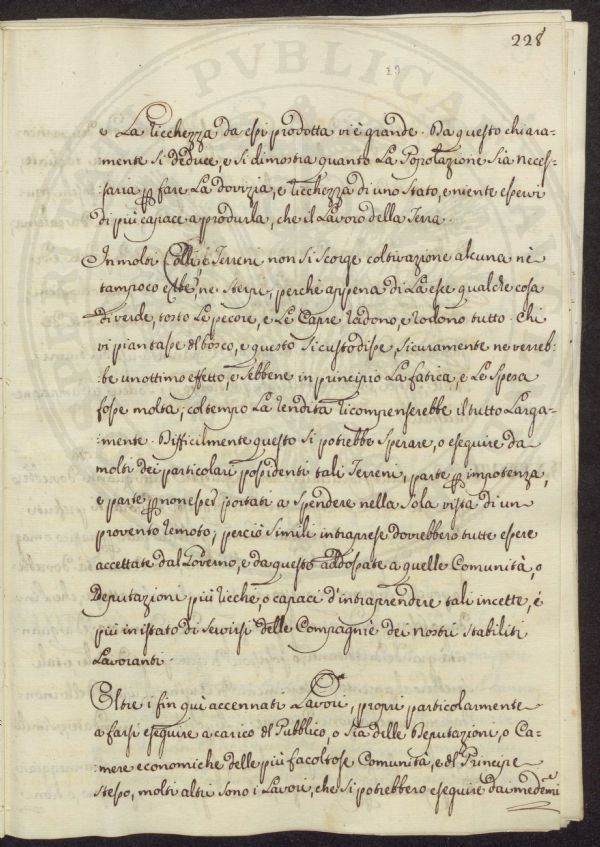 228
e La ricchezza da essi prodotta vi è grande. Da questo chiara=
mente si deduce, e si dimostra quanto La Popolazione sia neces=
=saria p fare La dovizia, e ricchezza di uno Stato, e niente esservi
di più capace a produrla, che il Lavoro della Terra.
In molti Colli e Terreni non si scorge coltivazione alcuna nè
tampoco erbe, ne sterpi, perchè appena di Là esce qualche cosa
di verde, tosto Le pecore, e Le Capre radono, e rodono tutto. Chi
vi piantasse del bosco, e questo si custodisse, sicuramente ne verreb=
=be un ottimo effetto, e sebbene in principio La fatica, e Le Spesa
fosse molta; col tempo La rendita ricompenserebbe il tutto Larga=
=mente. Difficilmente questo si potrebbe sperare, o eseguire da
molti dei particolari possidenti tali Terreni, parte p impotenza,
e parte p non esser portati a spendere nella sola vista di un
provento remoto; perciò simili intraprese dovrebbero tutte essere
accettate dal Governo, e da questo addossate a quelle Comunità, o
Deputazioni più ricche, o capaci d'intraprendere tali incette, è
più in istato di servirsi delle Compagnie dei nostri stabiliti
Lavoranti.
Oltre i fin qui accennati Lavori, proprj particolarmente
a farsi eseguire a carico del Pubblico, o sia delle Deputazioni, o Ca=
=mere economiche delle più facoltose Comunità, e del Principe
stesso, molti altri sono i Lavori, che si potrebbero eseguire dai medemi